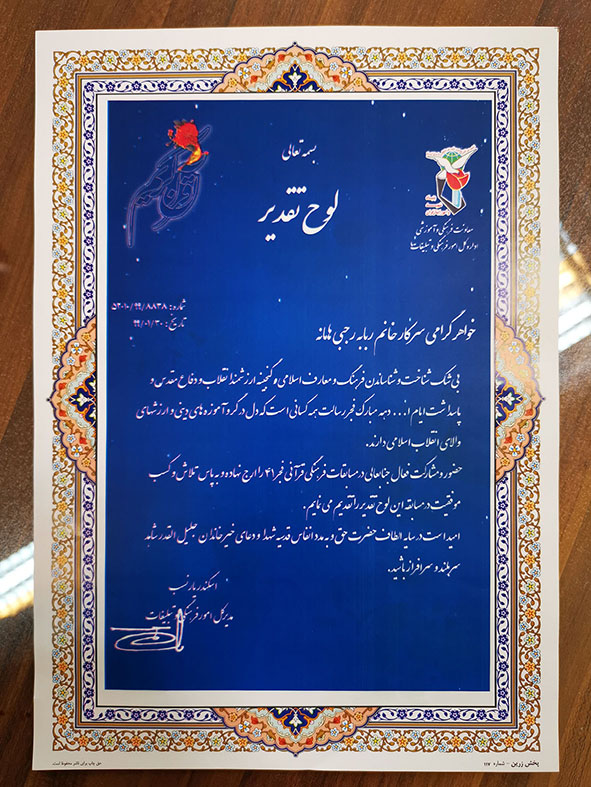 بسمه تعالی
لوح تقدیر
معاونت فرهنگی و آموزشی
اداره کل امور فرهنگی و تبلیغات
شماره: ۵۲۰۱۰/۹۹/۸۸۳۸
تاریخ: ۹۹/۰۱/۳۰
خواهر گرامی سرکار خانم ربابه رجبی هامانه
بی شک شناخت و شناساندن فرهنگ و معارف اسلامی و گنجینه ارزشمند انقلاب و دفاع مقدس و
پاسداشت ایام ا... دهه مبارک فجر رسالت همه کسانی است که دل در گرو آموزه های دینی و ارزشهای
والای انقلاب اسلامی دارند.
حضور و مشارکت فعال جنابعالی در مسابقات فرهنگی قرآنی فجر ۴۱ را ارج نهاده و به پاس تلاش و کسب
موفقیت در مسابقه این لوح تقدیر را تقدیم می نمایم.
امید است در سایه الطاف حضرت حق و به مدد انفاس قدسیه شهدا و دعای خیر خاندان جلیل القدر شاهد
سربلند و سرافراز باشید.
اسکندر پارنسب
مدیر کل امور فرهنگی و تبلیغات
پخش زرین - شماره ۱۱۷
حق چاپ برای ناشر محفوظ است